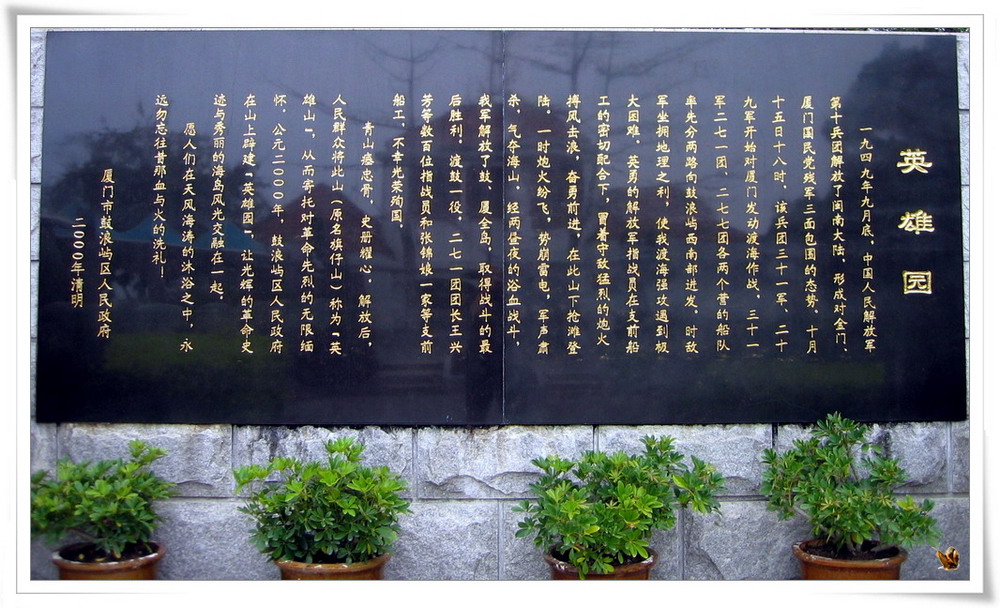 英雄园
一九四九年九月底，中国人民解放军
第十兵团解放了闽南大陆，形成对金门、
厦门国民党残军三面包围的态势。十月
十五日十八时，该兵团三十一军、二十
九军开始对厦门发动渡海作战。三十一
军二七一团、二七七团各两个营的船队
率先分两路向鼓浪屿西南部进发。时敌
军坐拥地理之利，使我渡海强攻遇到极
大困难。英勇的解放军指战员在支前船
工的密切配合下，冒着守敌猛烈的炮火
搏风击浪，奋勇前进，在此山下抢滩登
陆。一时炮火纷飞，势崩雷电，军声肃
杀，气夺海山。经两昼夜的浴血战斗，
我军解放了鼓、厦全岛，取得战斗的最
后胜利。渡鼓一役，二七一团团长王兴
芳等数百位指战员和张锦娘一家等支前
船工，不幸光荣殉国。
青山瘗忠骨，史册耀心。解放后，
人民群众将此山（原名旗仔山）称为“英
雄山”，从而寄托对革命先烈的无限缅
怀。公元二000年，鼓浪屿区人民政府
在山上辟建“英雄园”，让光辉的革命史
迹与秀丽的海岛风光交融在一起。
愿人们在天风海涛的沐浴之中，永
远勿忘往昔那血与火的洗礼！
厦门市鼓浪屿区人民政府
二000年清明